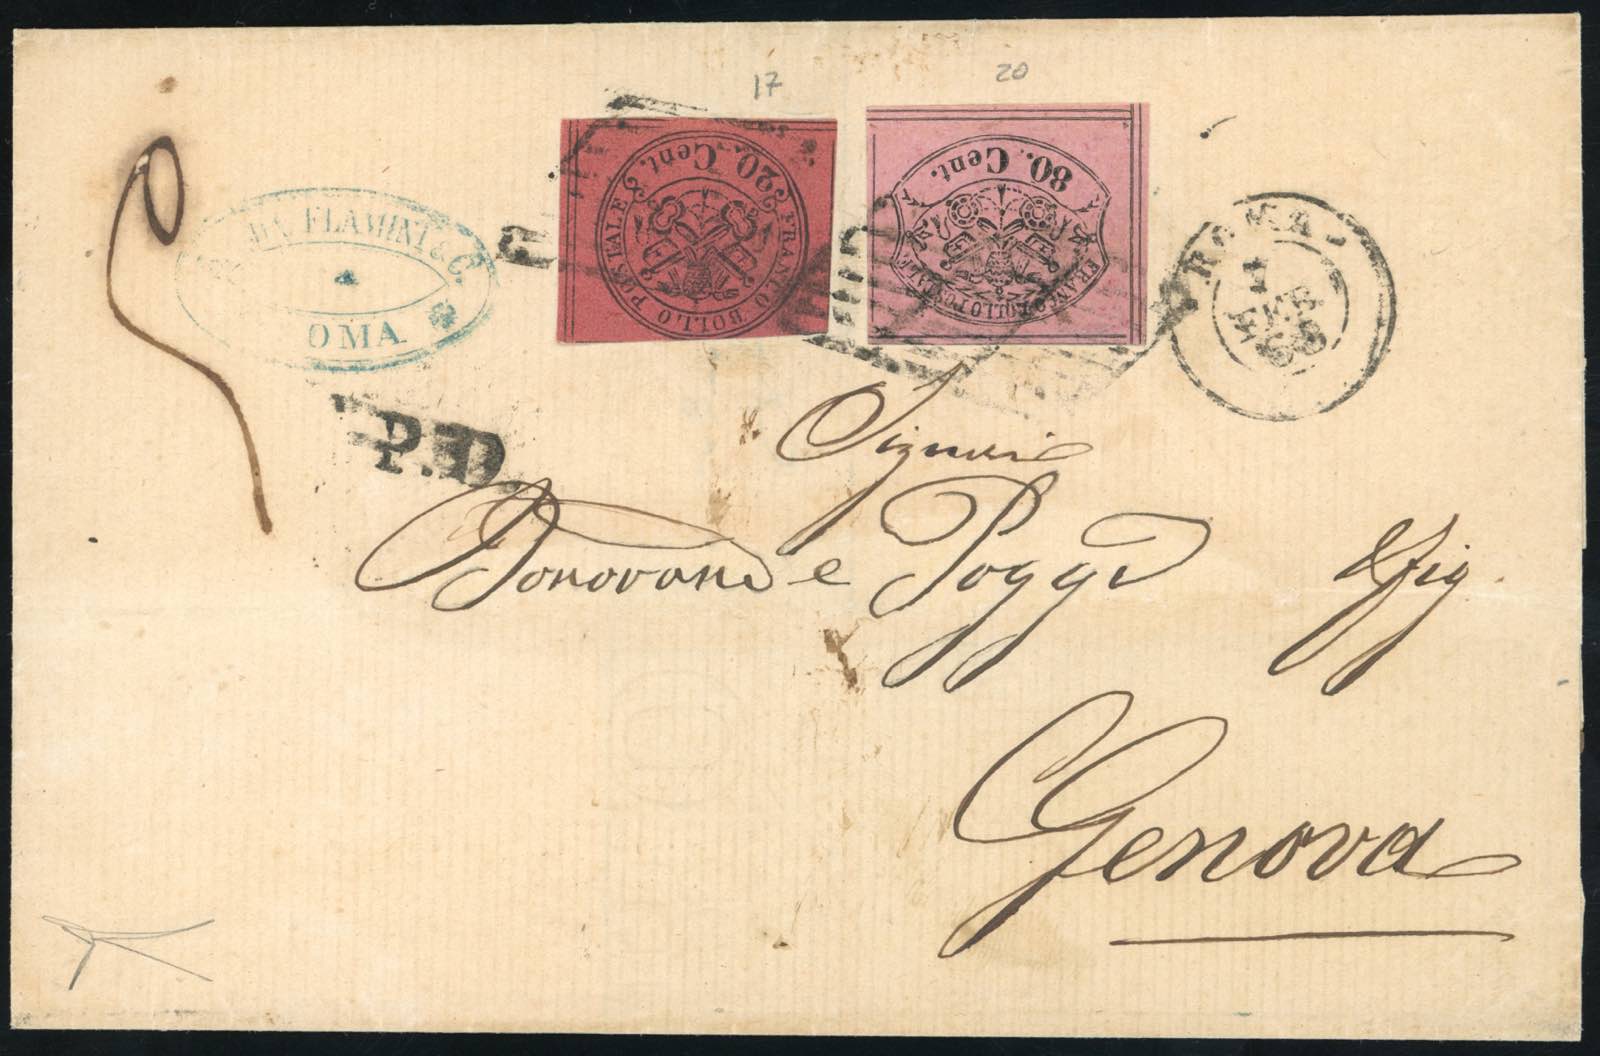 17
20
20. Cent.
FRANCO BOLLO POSTALE
80. Cent.
FRANCO BOLLO POSTALE
ROMA
FLAMINI & C.
OMA.
P.D.
Signori
Donovane e Poggi
Genova